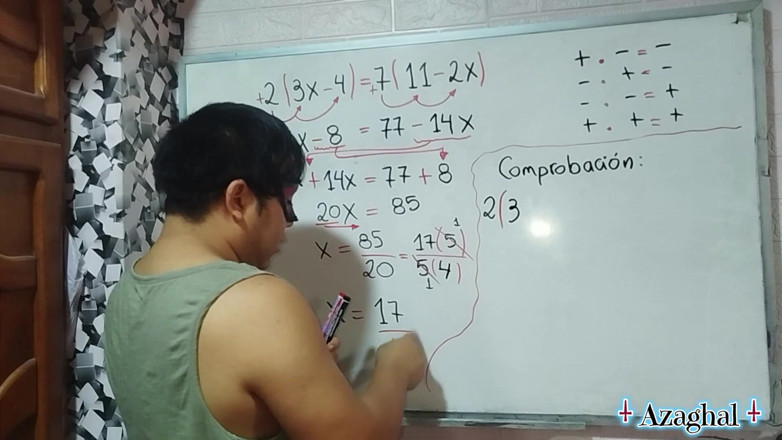 +2(3x-4)=+7(11-2x)
x-8 = 77-14x
+14x = 77+8
20x = 85
x = 85/20 = 17(5)/5(4)
1
1
= 17
+ . - = -
- . + = -
- . - = +
+ . + = +
Comprobación:
2(3
Azaghal